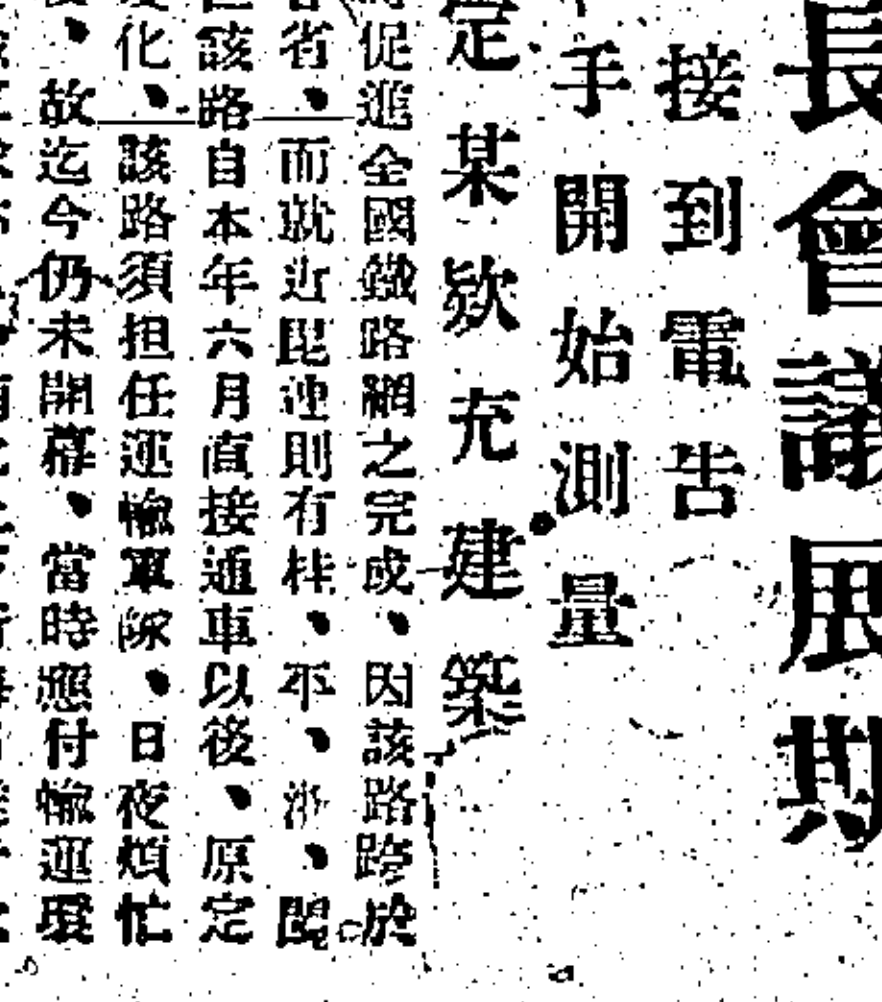 長會議展期
接到電告
手開始測量
定某欵充建築
促進全國鐵路網之完成、因該路跨於
省、而就近毘連則有桂、平、浙、閩
該路自本年六月直接通車以後、原定
化、該路須担任運輸軍隊、日夜煩忙
、故迄今仍未開幕、當時應付輸運環